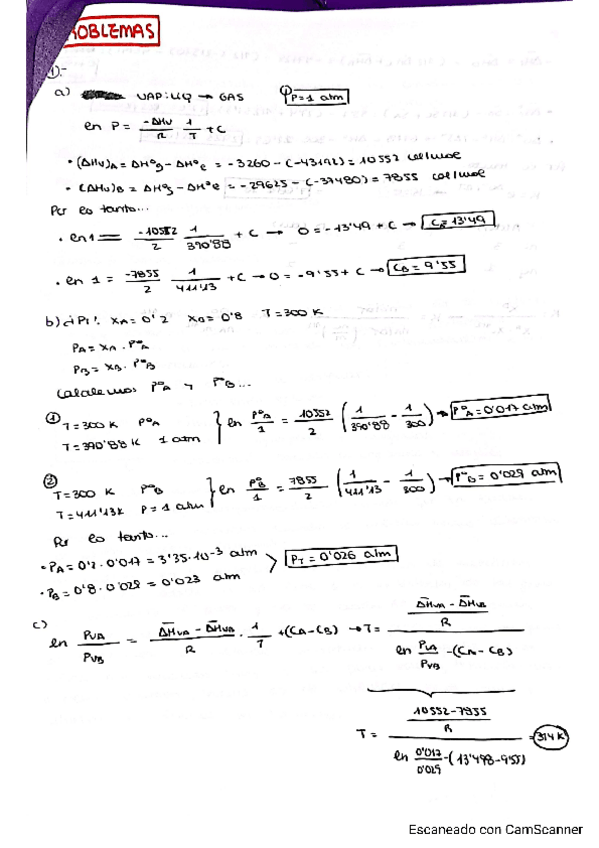 PROBLEMAS
1).-
a) VAP: LIQ → GAS P=1 atm
ln P = -ΔHv/R 1/T + C
• (ΔHv)A = ΔH°g - ΔH°e = -3260 - (-43192) = 10552 cal/mol
• (ΔHv)B = ΔH°g - ΔH°e = -29625 - (-37480) = 7855 cal/mol
Por lo tanto...
• ln 1 = -10552/2 1/390'88 + C → 0 = -13'49 + C → CA = 13'49
• ln 1 = -7855/2 1/411'13 + C → 0 = -9'55 + C → CB = 9'55
b) ¿P? XA = 0'2 XB = 0'8 T = 300 K
PA = XA · P°A
PB = XB · P°B
Calculemos P°A y P°B...
① T = 300 K P°A
T = 390'88 K 1 atm } ln P°A/1 = 10552/2 (1/390'88 - 1/300) → P°A = 0'017 atm
② T = 300 K P°B
T = 411'13 K P = 1 atm } ln P°B/1 = 7855/2 (1/411'13 - 1/300) → P°B = 0'029 atm
Por lo tanto...
• PA = 0'2 · 0'017 = 3'35·10-3 atm
• PB = 0'8 · 0'029 = 0'023 atm
> PT = 0'026 atm
c) ln PVA/PVB = ΔHVA - ΔHVB/R · 1/T + (CA - CB) → T = (ΔHVA - ΔHVB/R)/(ln PVA/PVB - (CA - CB))
T = (10552-7855/R)/(ln 0'017/0'029 - (13'498-9'55)) = 314 K
Escaneado con CamScanner